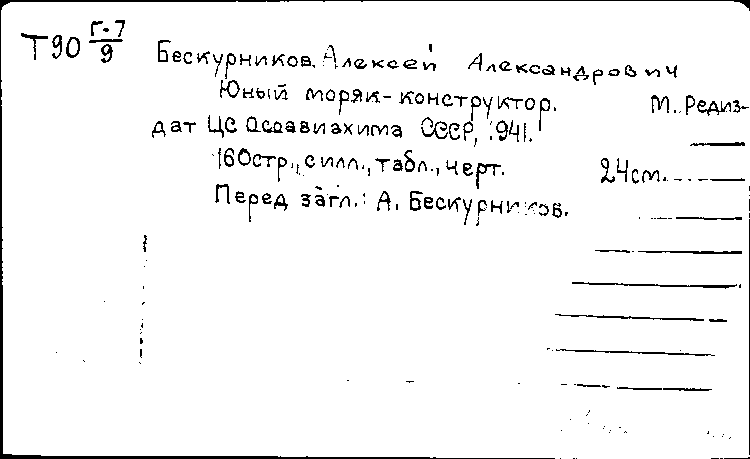 Т90 Г-7/9
Бескурников, Алексей Александрович
Юный моряк-конструктор. М. Редиз-
дат ЦС Осоавиахима СССР, 1941.
160стр., с илл., табл., черт. 24см.
Перед загл.: А. Бескурников.